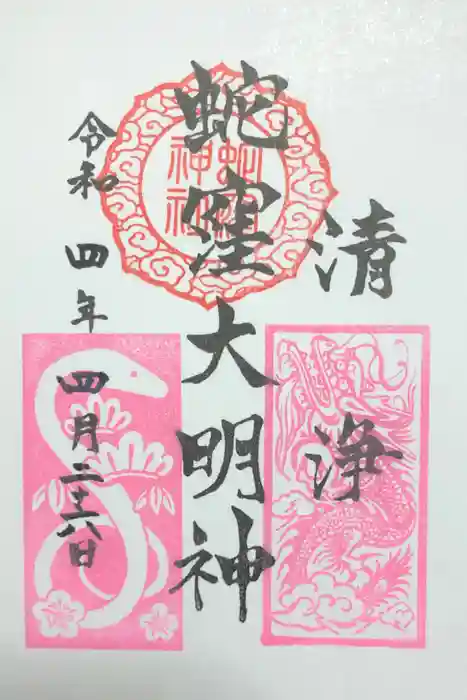 清浄
蛇窪大明神
令和四年四月二十六日
蛇窪
神社